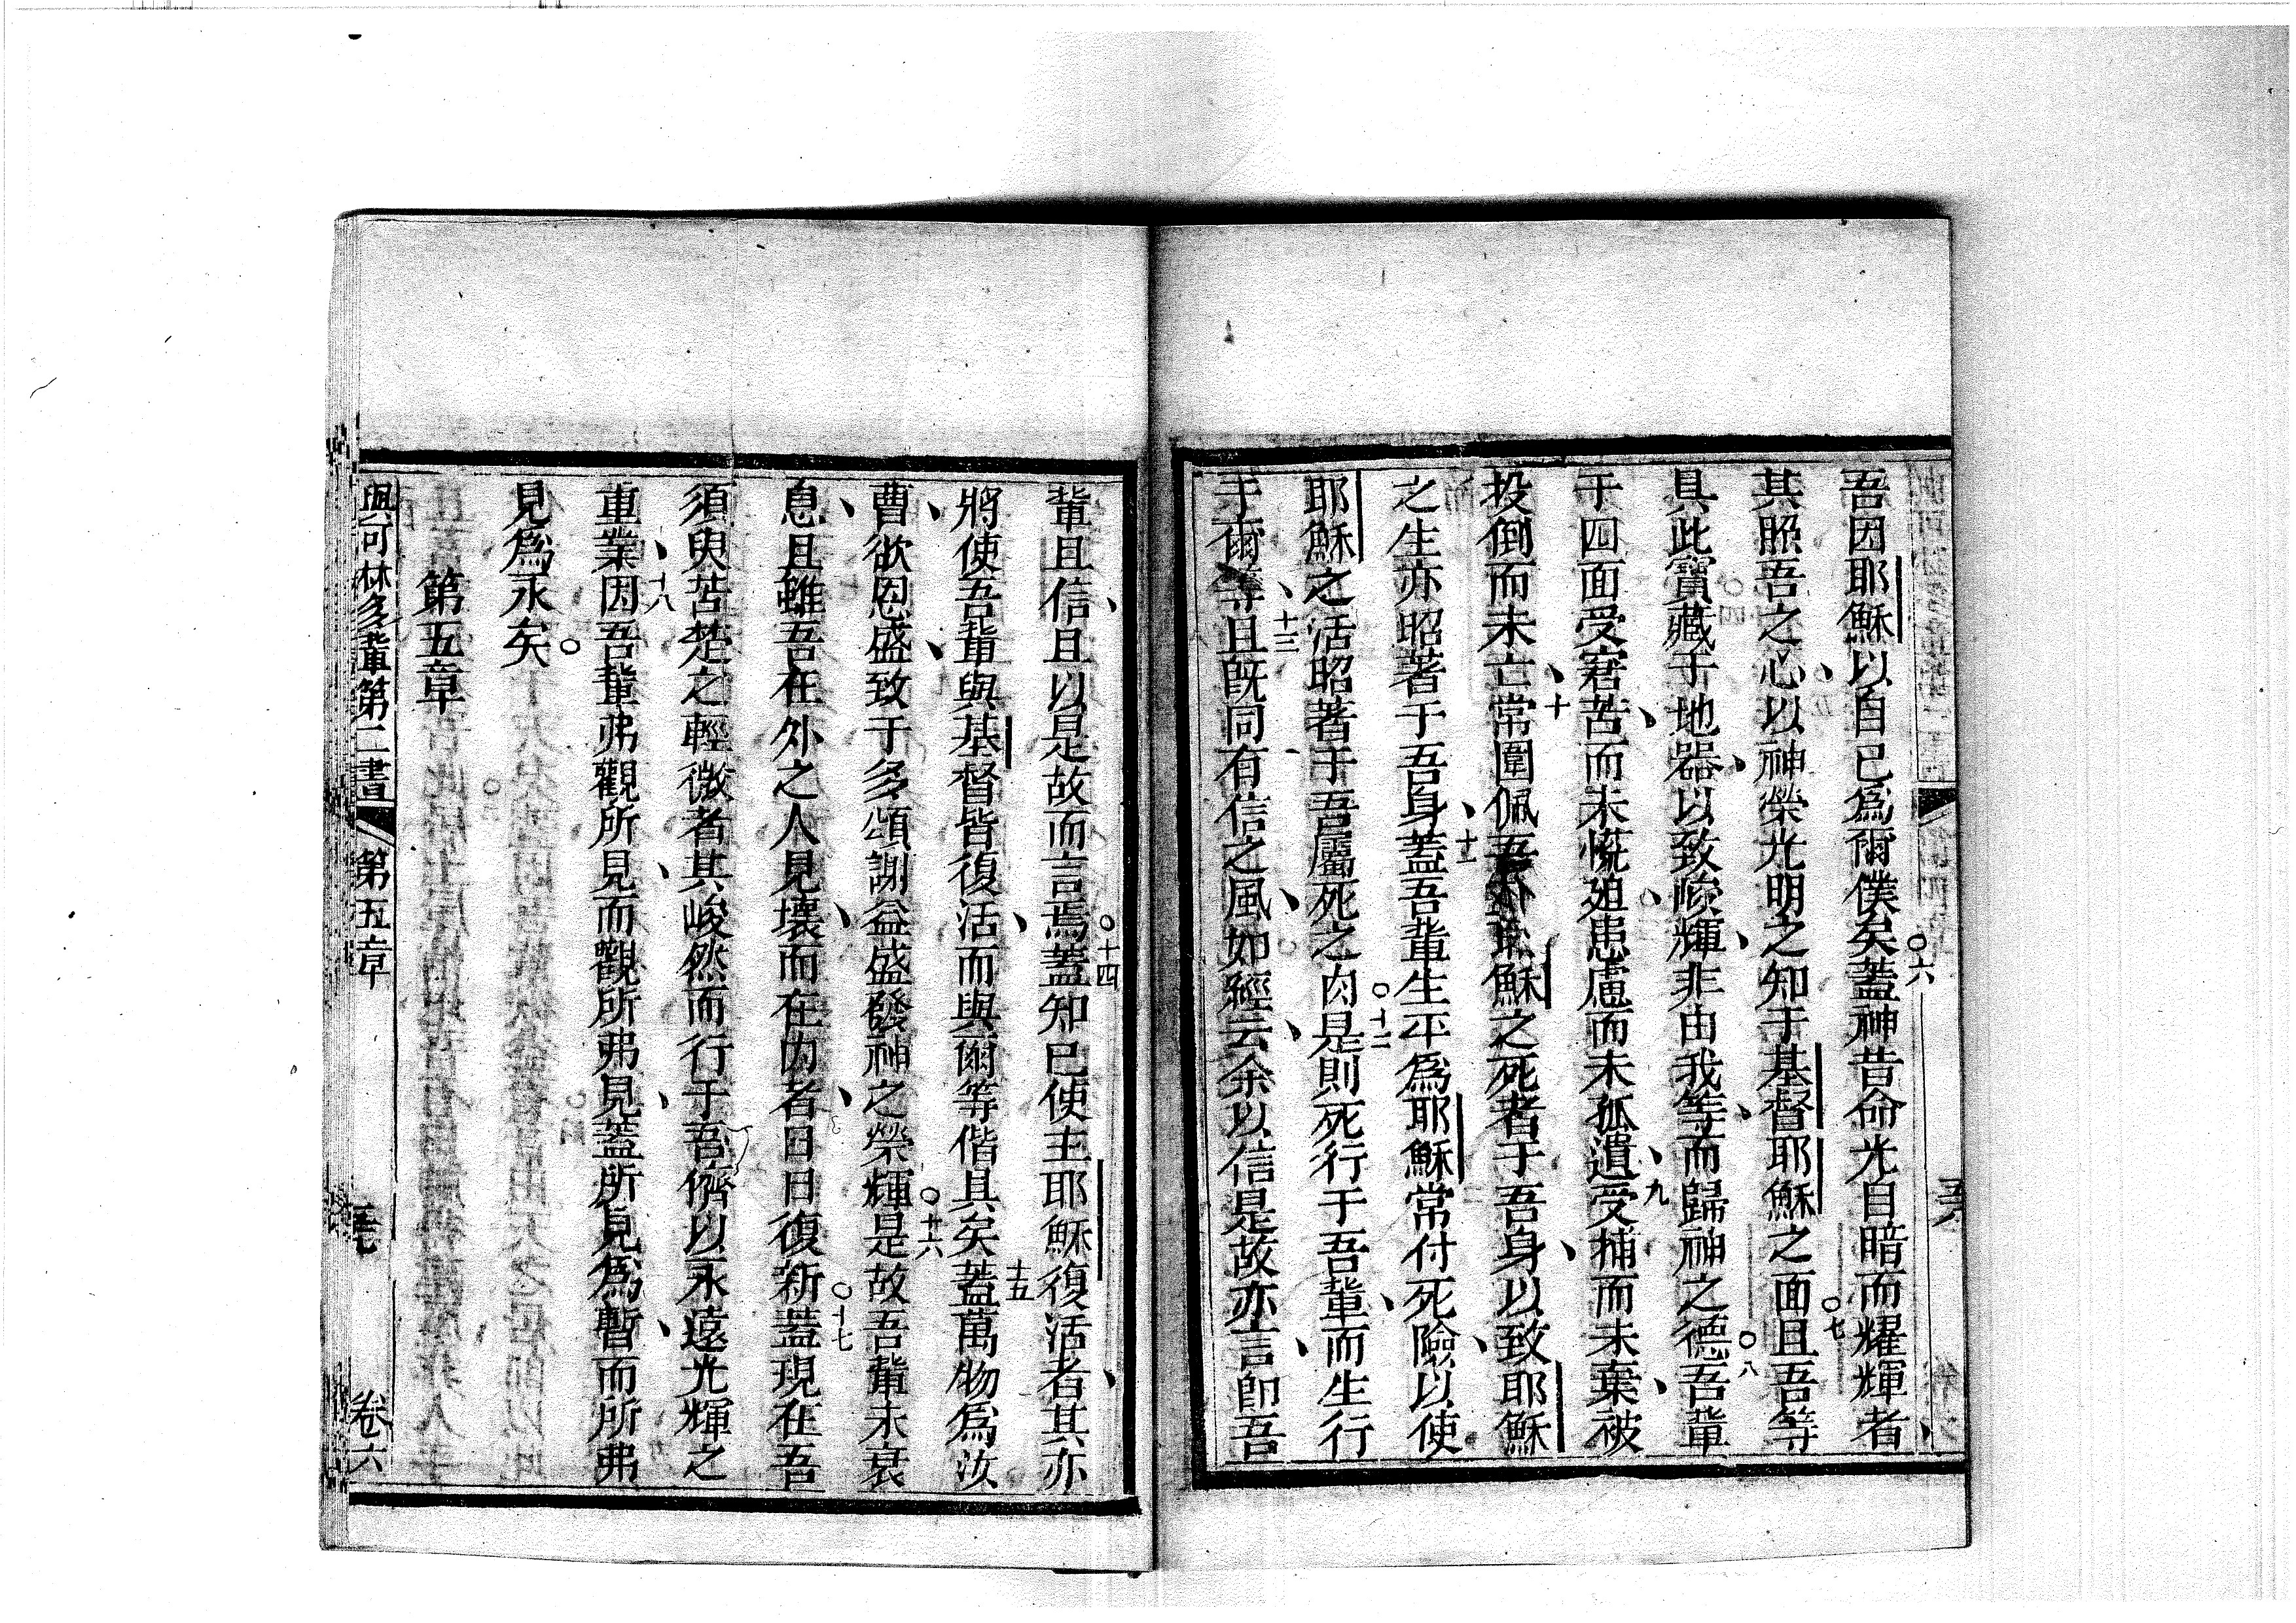 吾因耶穌以自已爲爾僕矣○六蓋神昔命光自暗而耀輝者、
其照吾之心、以神榮光明之知于基督耶穌之面○七且吾等
具此寶藏于地器、以致峻輝、非由我等、而歸神之德○八吾輩
于四面受窘苦、而未慌廹患慮而未孤遺、九受捕而未棄、被
投倒而未亡、十常圍佩吾主耶穌之死者于吾身、以致耶穌
之生亦昭著于吾身、十一蓋吾輩生平爲耶穌常付死險、以使
耶穌之活昭著于吾屬死之肉○十二是則死行于吾輩、而生行
于爾等、十三且既同有信之風、如經云、余以信是故亦言、卽吾
輩且信、且以是故而言焉○十四蓋知已使主耶穌復活者、其亦
將使吾輩與基督皆復活、而與爾等偕具矣十五蓋萬物爲汝
曹、欲恩盛、致于多頌謝益盛發神之榮輝○十六是故吾輩未衰
息、且雖吾在外之人見壞、而在內者、日日復新○十七蓋現在吾
須臾苦楚之輕微者其峻然而行于吾儕以永遠光輝之
重業、十八因吾輩弗觀所見、而觀所弗見、蓋所見爲暫、而所弗
見爲永矣○
第五章
與可林多輩第二書 第五章 卷六